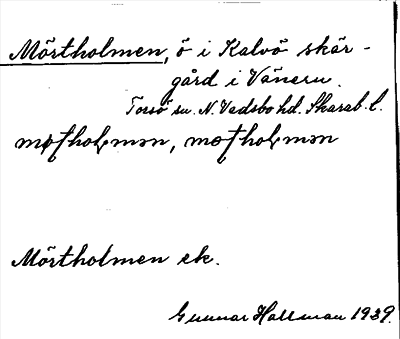 Mörtholmen, ö i Kalvö skär-
gård i Vänern.
Torsö sn. N. Vadsbo hd. Skarab. l.
Mörtholmen ek.
Gunnar Hallman 1939.